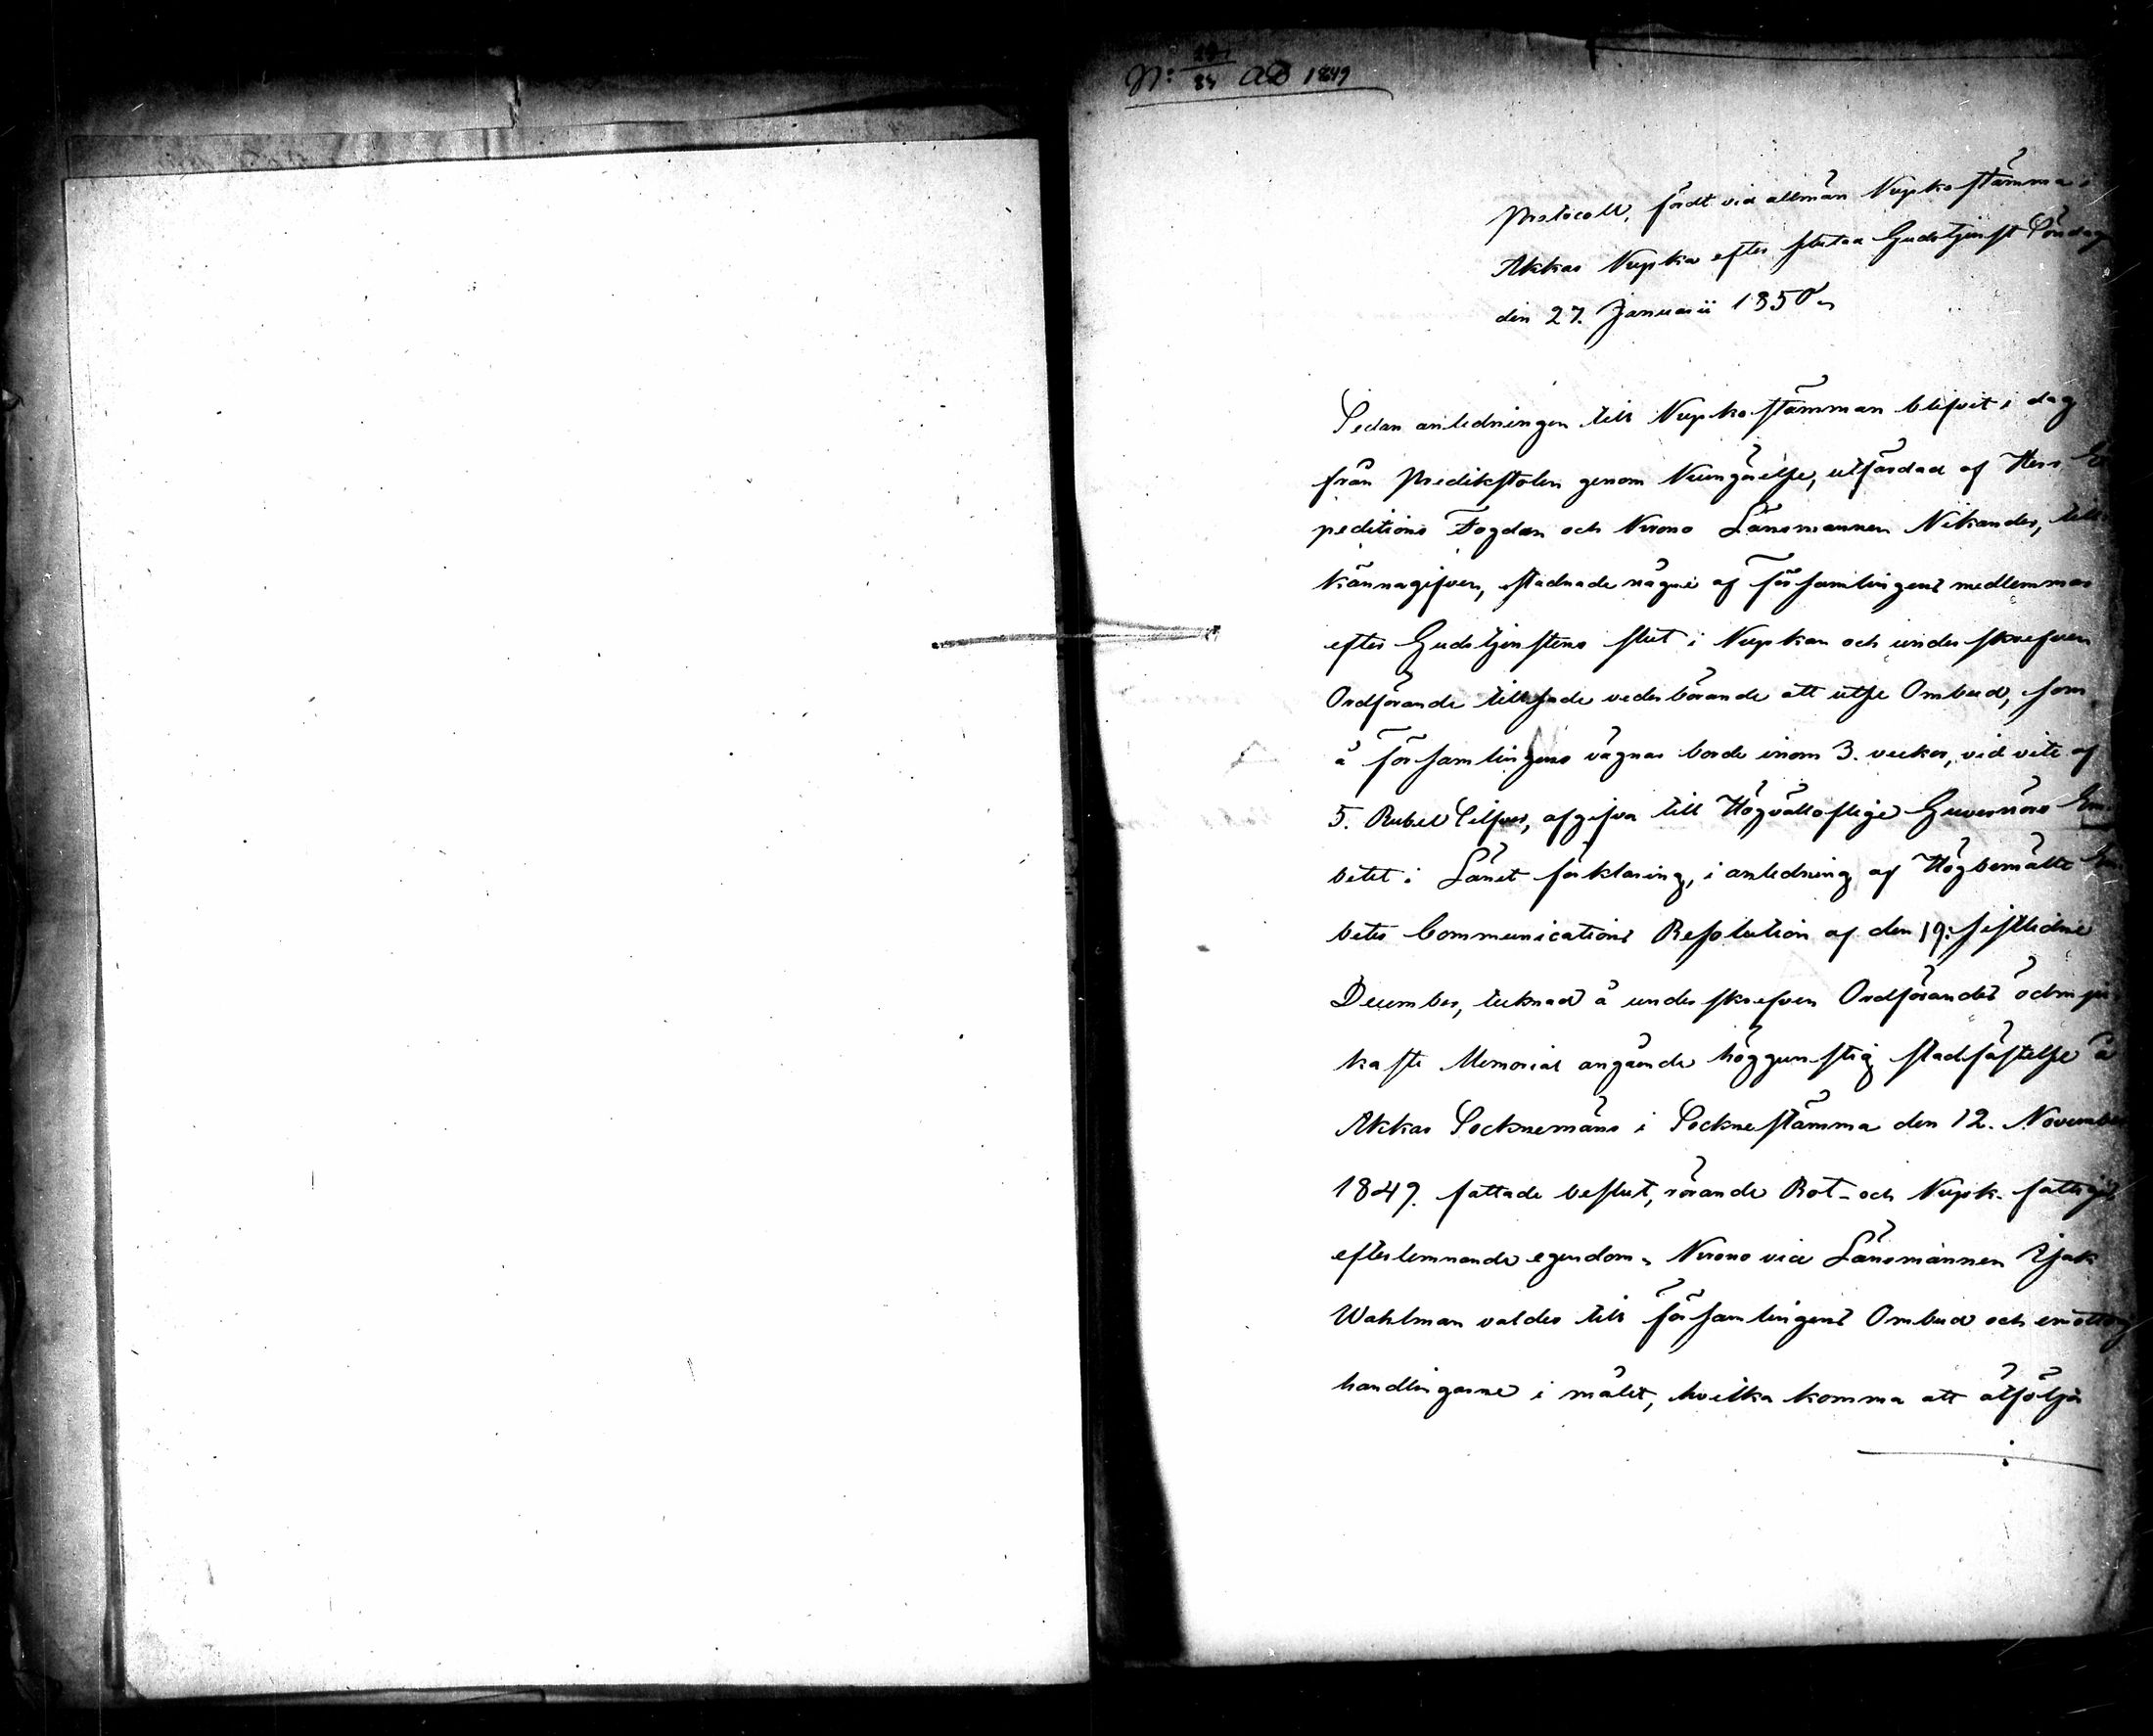 N:o 19/84 AD 1849
Protocoll, fördt vid allmän Kyrkostämma i
Akkas Kyrka efter slutad Gudstjenst Söndag
den 27. Januarii 1850.
Sedan anledningen till Kyrkostämman blifvit i dag
från Predikstolen genom Kungörelse, utfärdad af Herr Ex
peditions Fogden och Krono Länsmannen Nikander, till
kännagifven, stadnade någre af Församlingens medlemmar
efter Gudstjenstens slut i Kyrkan och underskrefven
Ordförande tillsade vederbörande att utse Ombud, som
å Församlingens vägnar borde inom 3. veckor, vid vite af
5. Rubel Silfver, afgifva till Högvällofliga Guvernörs Em
betet i Länet förklaring, i anledning af Högbemälte Em
betes Communications Resolution af den 19. sistlidne
December, tecknad å underskrefven Ordförandes ödmju
kaste Memorial angående höggunstig stadfästelse å
Akkas Socknemäns i Sockne stämma den 12. November
1849. fattade beslut, rörande Rot- och Kyrk-fattiges
efterlemnande egendom. Krono vice Länsmannen Isak
Wahlman valdes till Församlingens Ombud och emottog
handlingarne i målet, hvilka komma att åtfölja